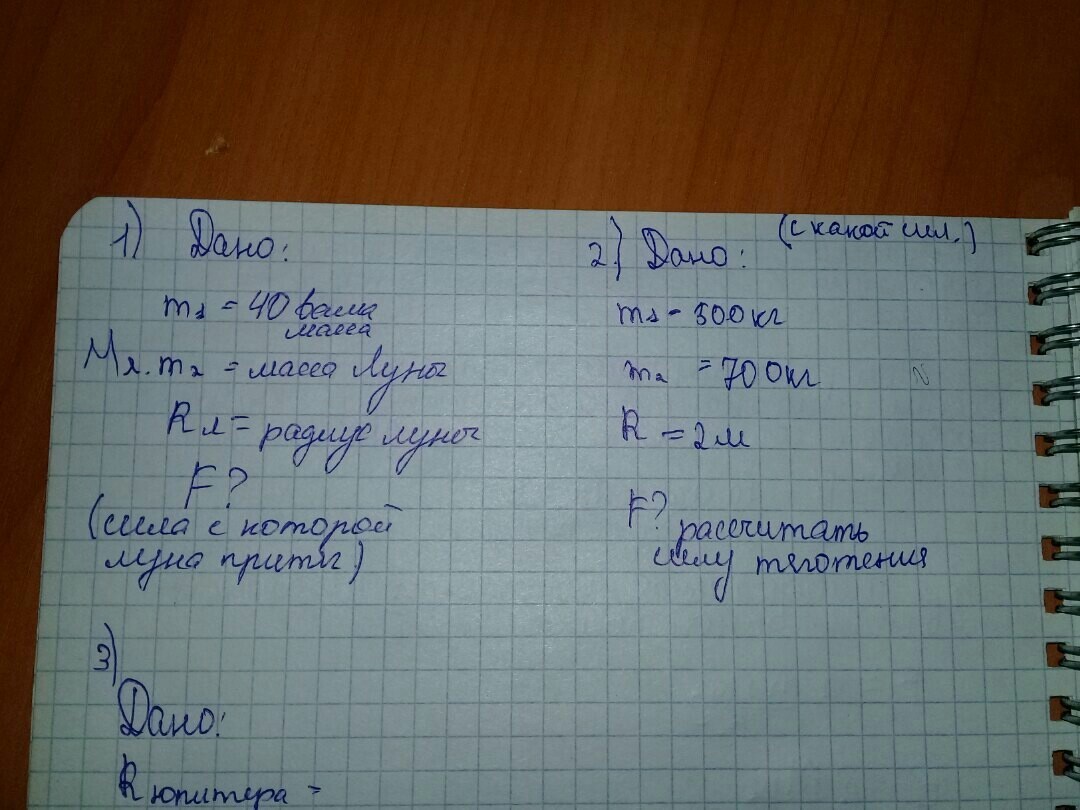 1) Дано:
m₁ = 40 ваша
масса
Мл. m₂ = масса Луны
Rл = радиус луны
F?
(сила с которой
луна притяг)
2.) Дано: (с какой сил.)
m₁ - 500кг
m₂ = 700кг
R = 2м
F? рассчитать
силу тяготения
3)
Дано:
R юпитера =